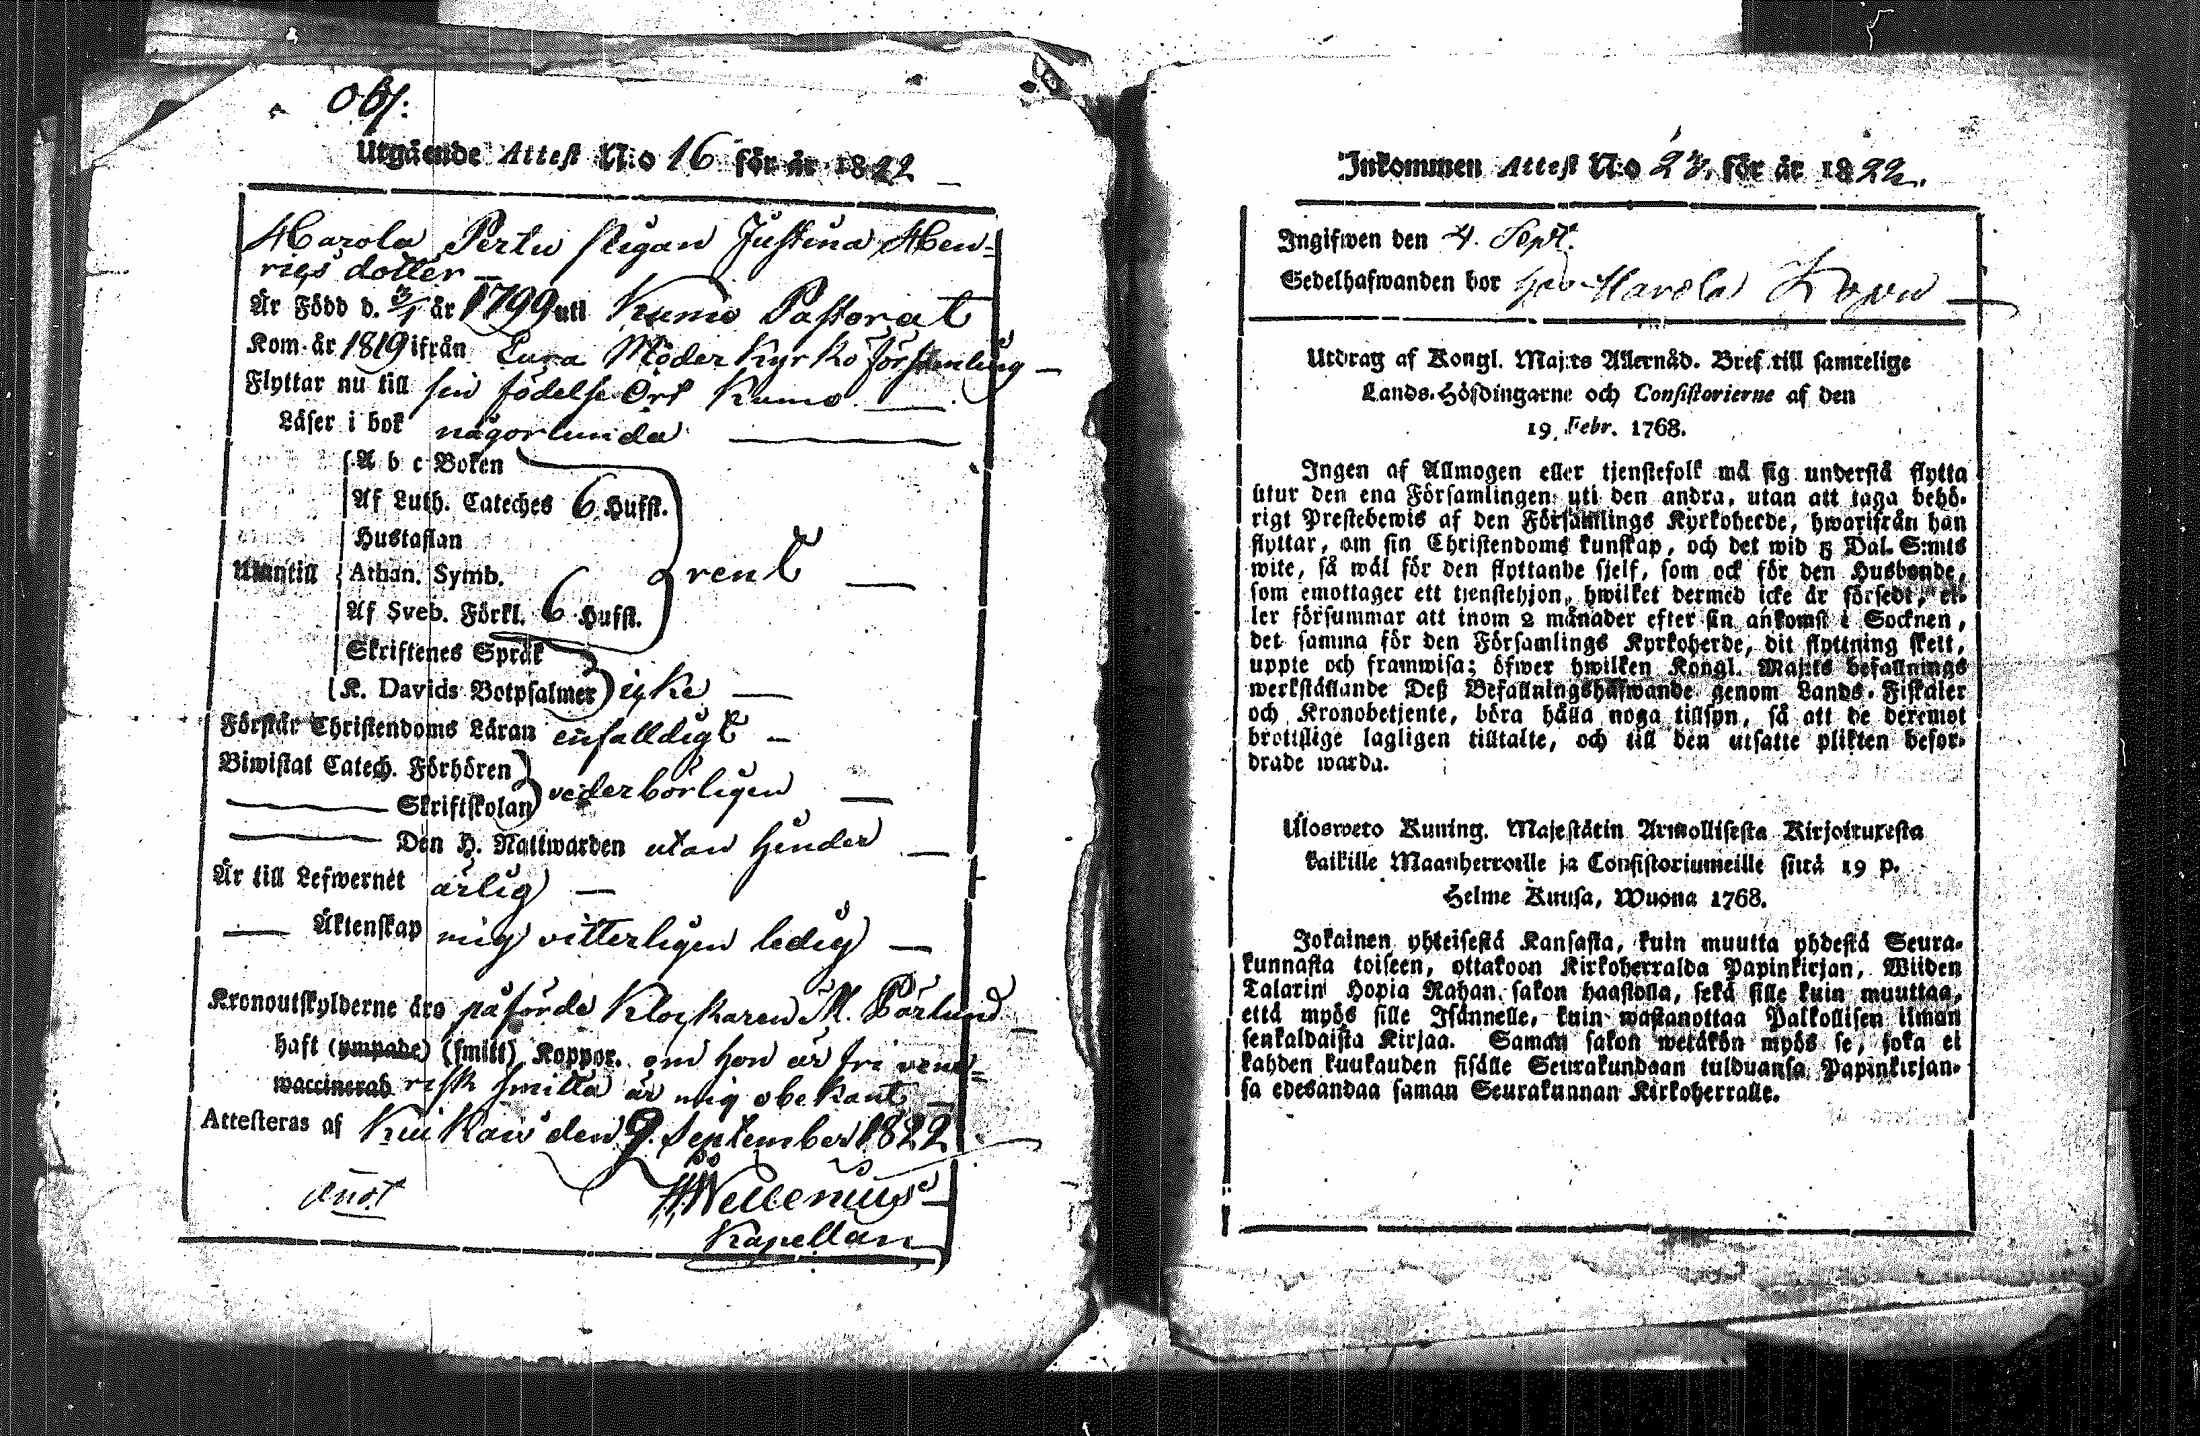 Obs:
Utgående Attest N:o 16 för år 1822
Harola Pertu Pigan Justina Hen-
rigs dotter
Är Född d. 3/1 år 1799 uti Kumo Pastorat
Kom år 1819 ifrån Eura Moder Kyrko församling
Flyttar nu till sin födelse Ort Kumo
Läser i bok någorlunda
A b c Boken
Af Luth. Cateches 6 Hufst.
Hustaflan
Utantill Athan. Symb. rent
Af Sveb. Förkl. 6 Hufst.
Skriftenes Språk
K. Davids Botpsalmer icke
Förstår Christendoms Läran enfalldigt
Biwistat Catech. Förhören
Skriftskolan vederbörligen
Den H. Nattwarden utan hinder
Är till Lefwernet ärlig
Äktenskap mig vitterligen ledig
Kronoutskylderne äro påförde Klockaren M. Pärlund
haft (ympade) (smitt) Koppor. om hon är fri vene-
waccinerad risk smitta är mig obekant
Attesteras af Kiukais den 9. September 1822
Anot
Wellenius
Kapellan
Inkommen Attest N:o 23. för år 1822.
Ingifwen den 4. Sept.
Sedelhafwanden bor hos Harola
Utdrag af Kongl. Maj:ts Allernåd. Bref till samtelige
Lands-Höfdingarne och Consistorierne af den
19. Febr. 1768.
Ingen af Allmogen eller tjenstefolk må sig understå flytta
utur den ena Församlingen uti den andra, utan att taga behö-
rigt Prestebewis af den Församlings Kyrkoherde, hwarifrån han
flyttar, om sin Christendoms kunskap, och det wid 5 Dal. S:mts
wite, så wäl för den flyttande sjelf, som ock för den Husbonde,
som emottager ett tjenstehjon, hwilket dermed icke är försedt, el-
ler försummar att inom 2 månader efter sin ankomst i Socknen,
det samma för den Församlings Kyrkoherde, dit flyttning skett,
uppte och framwisa; öfwer hwilken Kongl. Maj:ts befallnings
werkställande Deß Befallningshafwande genom Lands-Fiskaler
och Kronobetjente, böra hålla noga tillsyn, så att de deremot
brottslige lagligen tilltalte, och till den utsatte plikten befor-
drade warda.
Ulosweto Kuning. Majestätin Armollisesta Kirjoituxesta
kaikille Maanherroille ja Consistoriumeille siitä 19 p.
Helme Kuusa, Wuona 1768.
Jokainen yhteisestä Kansasta, kuin muutta yhdestä Seura-
kunnasta toiseen, ottakoon Kirkoherralda Papinkirjan, Wiiden
Talarin Hopia Rahan sakon haastolla, sekä sille kuin muuttaa,
että myös sille Isännelle, kuin wastanottaa Palkollisen ilman
senkaldaista Kirjaa. Saman sakon wetäkön myös se, joka ei
kahden kuukauden sisälle Seurakundaan tulduansa Papinkirjan-
sa edesandaa saman Seurakunnan Kirkoherralle.